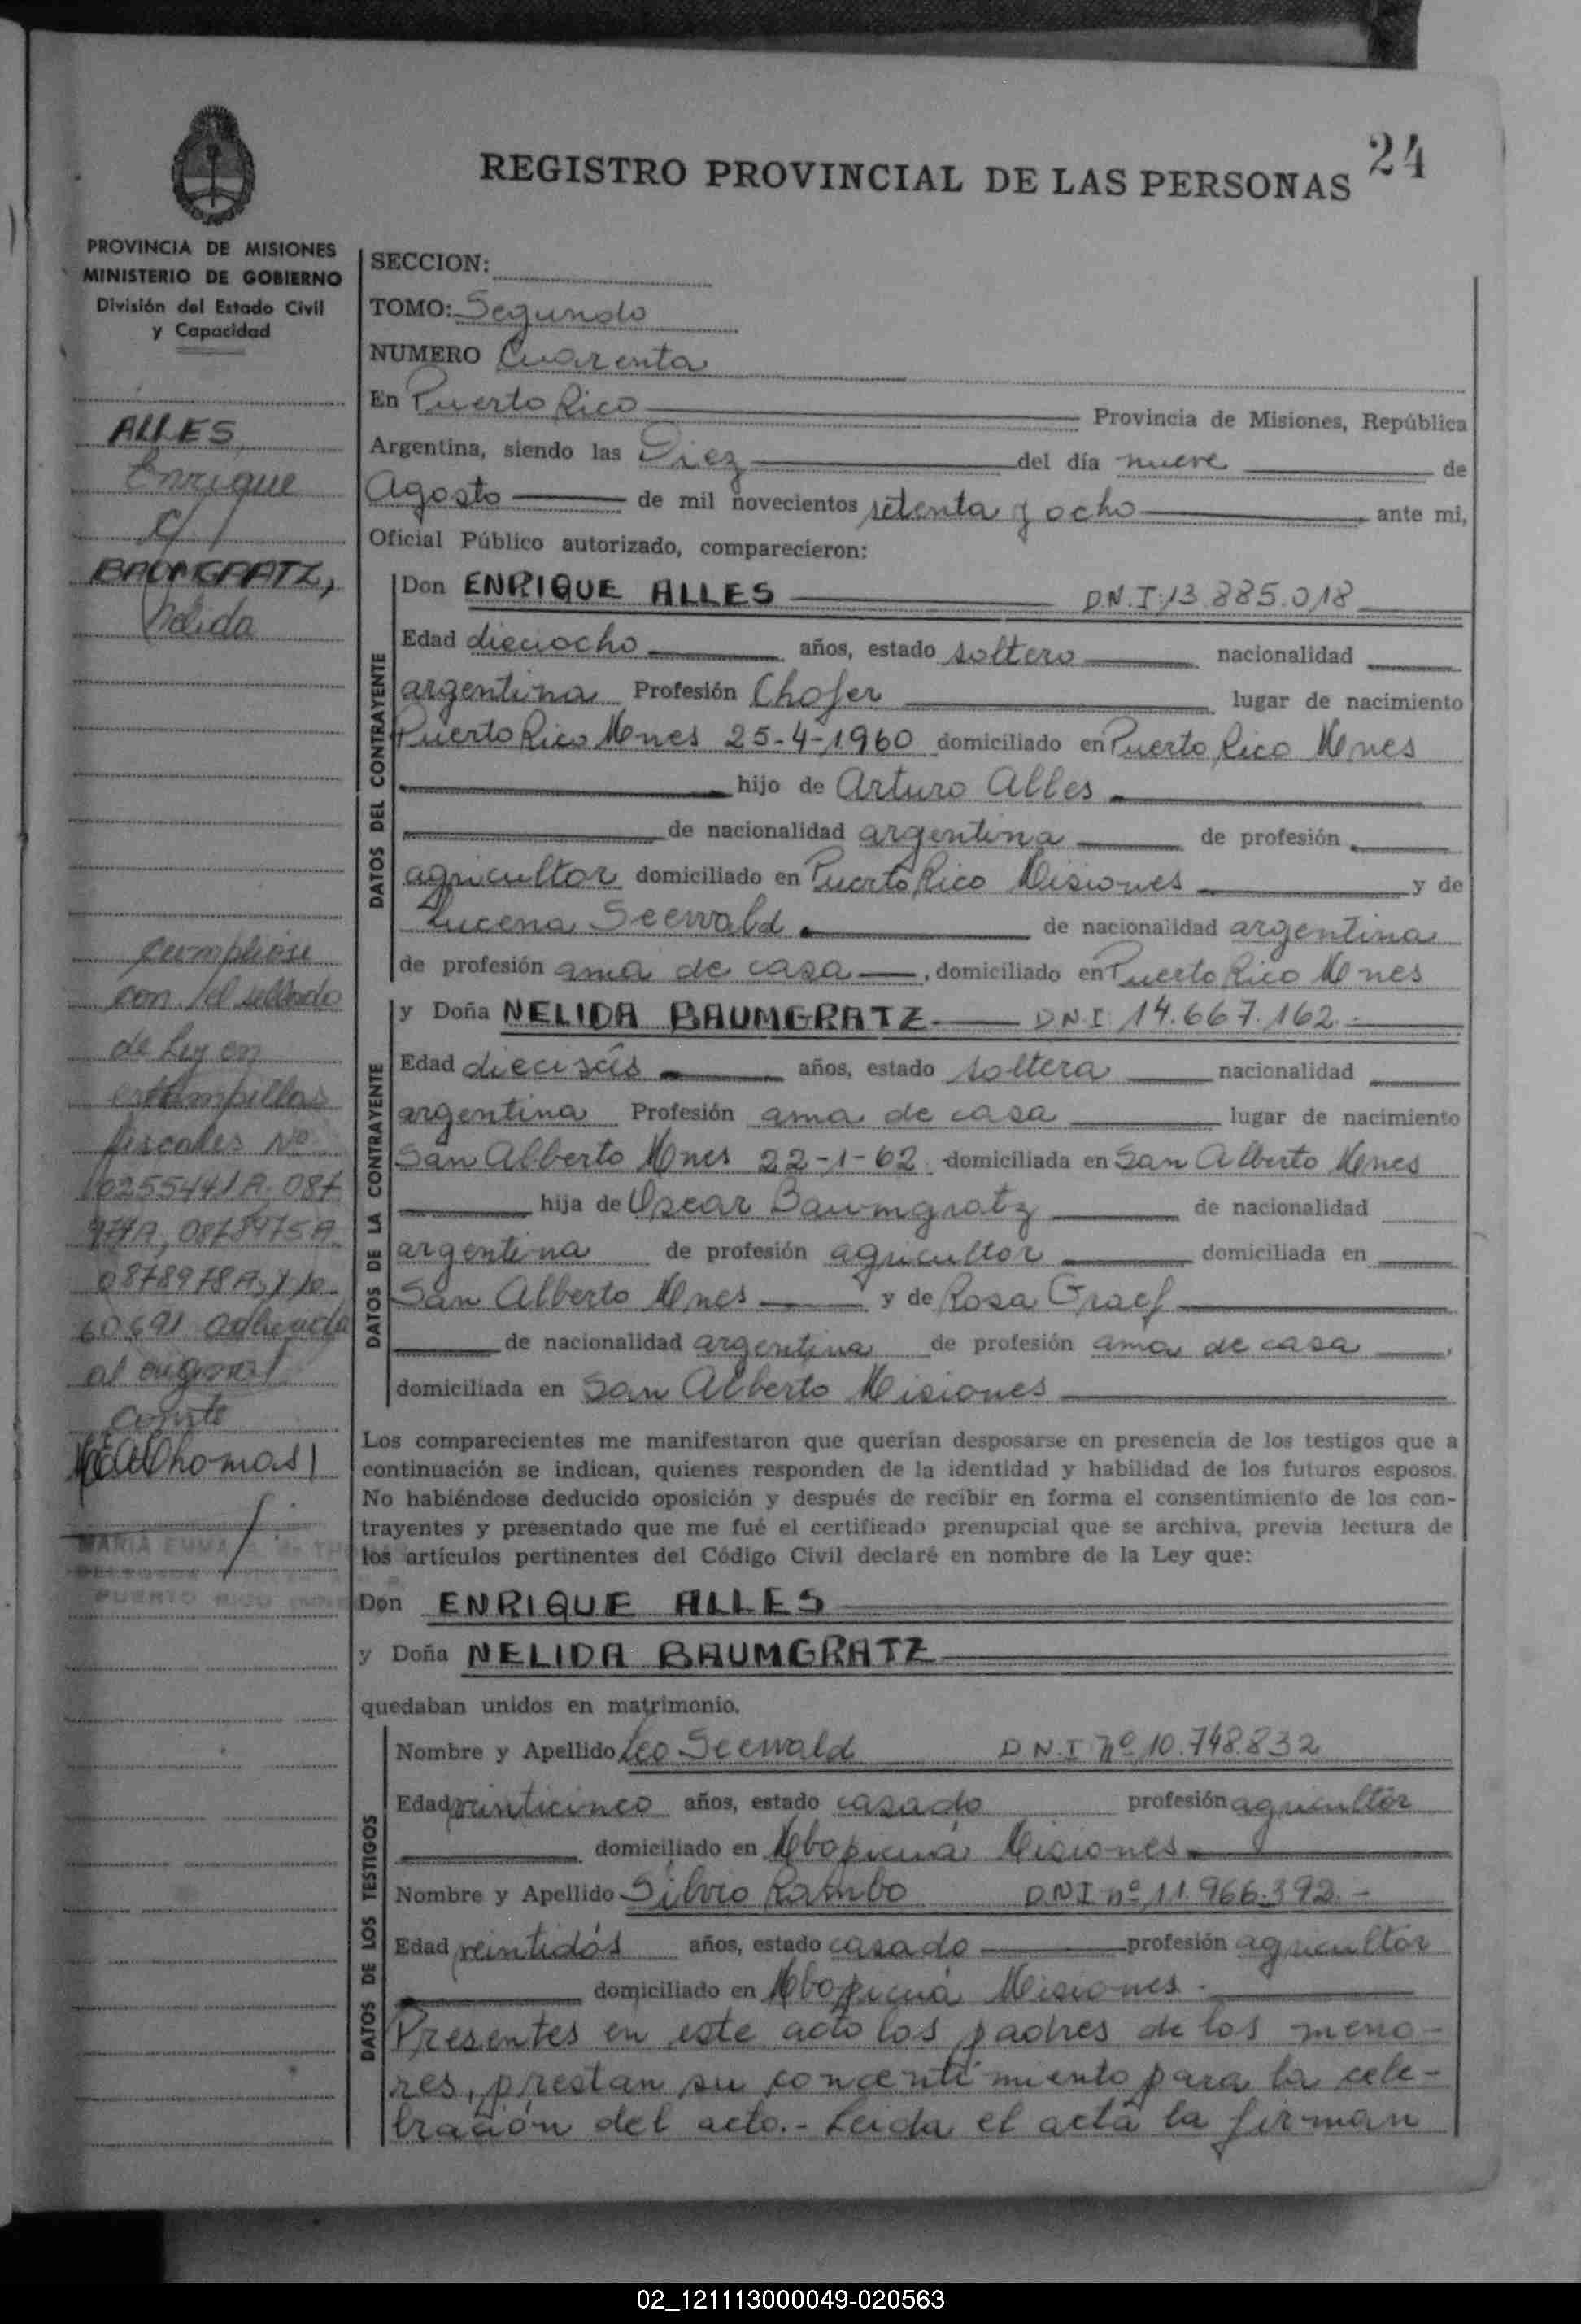 24
REGISTRO PROVINCIAL DE LAS PERSONAS
PROVINCIA DE MISIONES
MINISTERIO DE GOBIERNO
División del Estado Civil
y Capacidad
ALLES,
Enrique
c/
BAUMGRATZ,
Nelida
cumpliose
con el sellado
de Ley en
estampillas
fiscales Nº
0255441A, 087
0878978A, y
60691
al original
conste
MARIA EMMA
PUERTO RICO
SECCION:
TOMO: Segundo
NUMERO Cuarenta
En Puerto Rico Provincia de Misiones, República
Argentina, siendo las Diez del día nueve de
Agosto de mil novecientos setenta y ocho ante mi,
Oficial Público autorizado, comparecieron:
DATOS DEL CONTRAYENTE
Don ENRIQUE ALLES D.N.I. 13.885.018
Edad dieciocho años, estado soltero nacionalidad
argentina Profesión Chofer lugar de nacimiento
Puerto Rico Mnes 25-4-1960 domiciliado en Puerto Rico Mnes
hijo de Arturo Alles
de nacionalidad argentina de profesión
agricultor domiciliado en Puerto Rico Misiones y de
Lucena Seewald de nacionalidad argentina
de profesión ama de casa, domiciliado en Puerto Rico Mnes
DATOS DE LA CONTRAYENTE
y Doña NELIDA BAUMGRATZ D N I 14.667.162.-
Edad dieciséis años, estado soltera nacionalidad
argentina Profesión ama de casa lugar de nacimiento
San Alberto Mnes 22-1-62 domiciliada en San Alberto Mnes
hija de Oscar Baumgratz de nacionalidad
argentina de profesión agricultor domiciliada en
San Alberto Mnes y de Rosa Graef
de nacionalidad argentina de profesión ama de casa,
domiciliada en San Alberto Misiones
Los comparecientes me manifestaron que querían desposarse en presencia de los testigos que a
continuación se indican, quienes responden de la identidad y habilidad de los futuros esposos.
No habiéndose deducido oposición y después de recibir en forma el consentimiento de los con-
trayentes y presentado que me fué el certificado prenupcial que se archiva, previa lectura de
los artículos pertinentes del Código Civil declaré en nombre de la Ley que:
Don ENRIQUE ALLES
y Doña NELIDA BAUMGRATZ
quedaban unidos en matrimonio.
DATOS DE LOS TESTIGOS
Nombre y Apellido Leo Seewald D.N.I nº 10.748.832
Edad veinticinco años, estado casado profesión agricultor
domiciliado en Mbopicuá Misiones
Nombre y Apellido Silvio Rambo D.N.I nº 11.966.392.-
Edad veintidós años, estado casado profesión agricultor
domiciliado en Mbopicuá Misiones.
Presentes en este acto los padres de los meno-
res, prestan su concentimiento para la cele-
bración del acto.- Leida el acta la firman
02_121113000049-020563